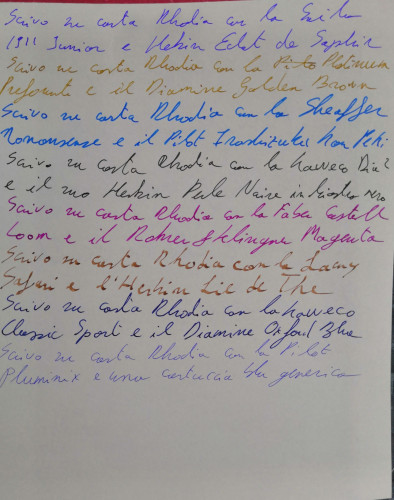 Scrivo su carta Rhodia con la Sailor
1911 Junior e Herbin Eclat de Saphir
Scrivo su carta Rhodia con la Pilot Platinum
Preferente e il Diamine Golden Brown
Scrivo su carta Rhodia con la Sheaffer
Nononsense e il Pilot Iroshizuku Kon Peki
Scrivo su carta Rhodia con la Kaweco Dia2
e il suo Herbin Perle Noire inchiostro nero
Scrivo su carta Rhodia con la Faber Castell
Loom e il Rohrer & Klingner Magenta
Scrivo su carta Rhodia con la Lamy
Safari e l'Herbin Lie de The
Scrivo su carta Rhodia con la Kaweco
Classic Sport e il Diamine Oxford Blue
Scrivo su carta Rhodia con la Pilot
Pluminix e una cartuccia blu generica